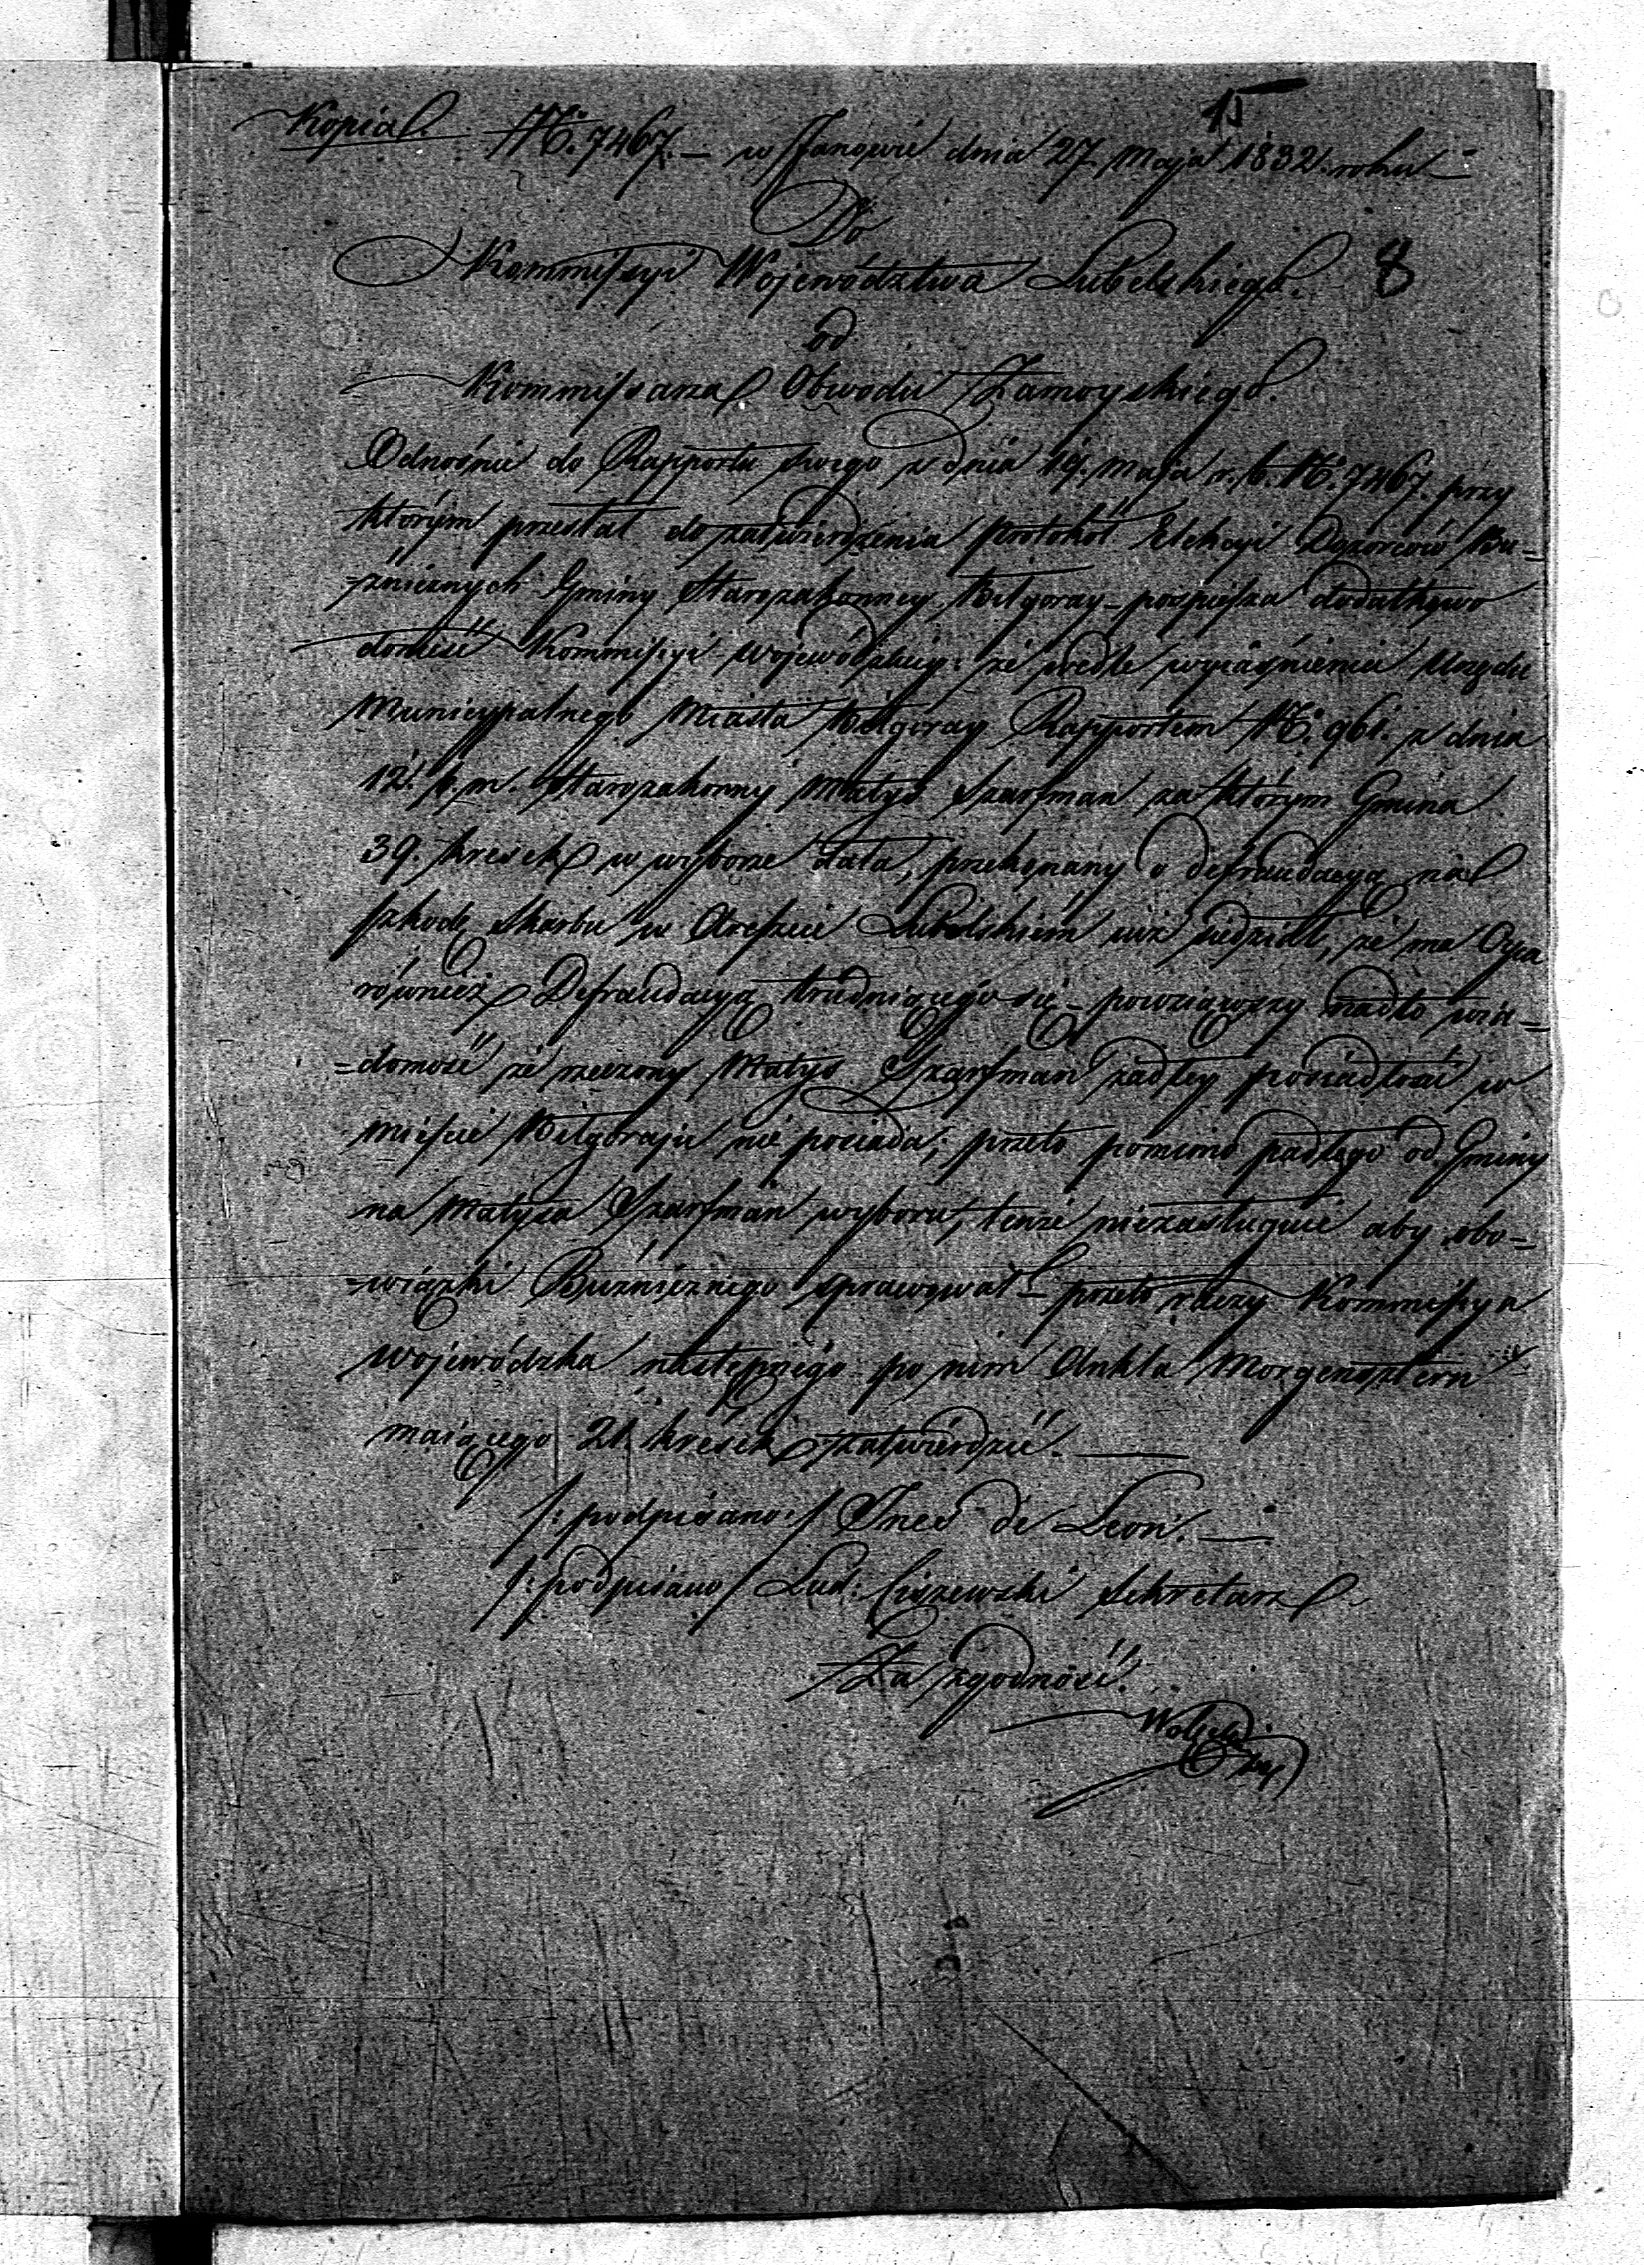 15
Kopia. № 7467. — w Janowie dnia 27 Maja 1832. roku —
Do
Kommissyi Województwa Lubelskiego.
8
od
Kommissarza Obwodu Zamoyskiego.
Odnośnie do Rapportu swego z dnia 19. maja r. b. № 7467. przy
którym przesłał do zatwierdzenia protokół Elekcyi Dozorców Bu=
=źnicznych Gminy Starozakonney Bilgoray – pospiesza dodatkowo
donieść Kommissyi Wojewódzkiey: że wedle wyiaśnienia Urzędu
Municypalnego Miasta Bilgoray Rapportem № 961. z dnia
12. b. m. starozakonny Matys Szarfman za którym Gmina
39. kresek w wyborze dała, przekonany o defraudacyą na
szkodę Skarbu w Areszcie Lubelskiem iuż siedział, że ma Oyca
również Defraudacyą trudniącego się – powziąwszy nadto wia=
=domość że rzeczony Matys Szarfman żadney posiadłości w
mieście Bilgoraju nie posiada; przeto pomimo padłego od Gminy
na Matysa Szarfman wyboru, tenże niezasługuie aby obo=
=wiązki Buźnicznego sprawował – przeto raczy Kommissya
Wojewódzka następnego po nim Ankla Morgensztern
maiącego 21 kresek zatwierdzić. —
/: podpisano :/ Ines de Leon. —
/: podpisano / Lud: Ciszewski Sekretarz
Za zgodność.